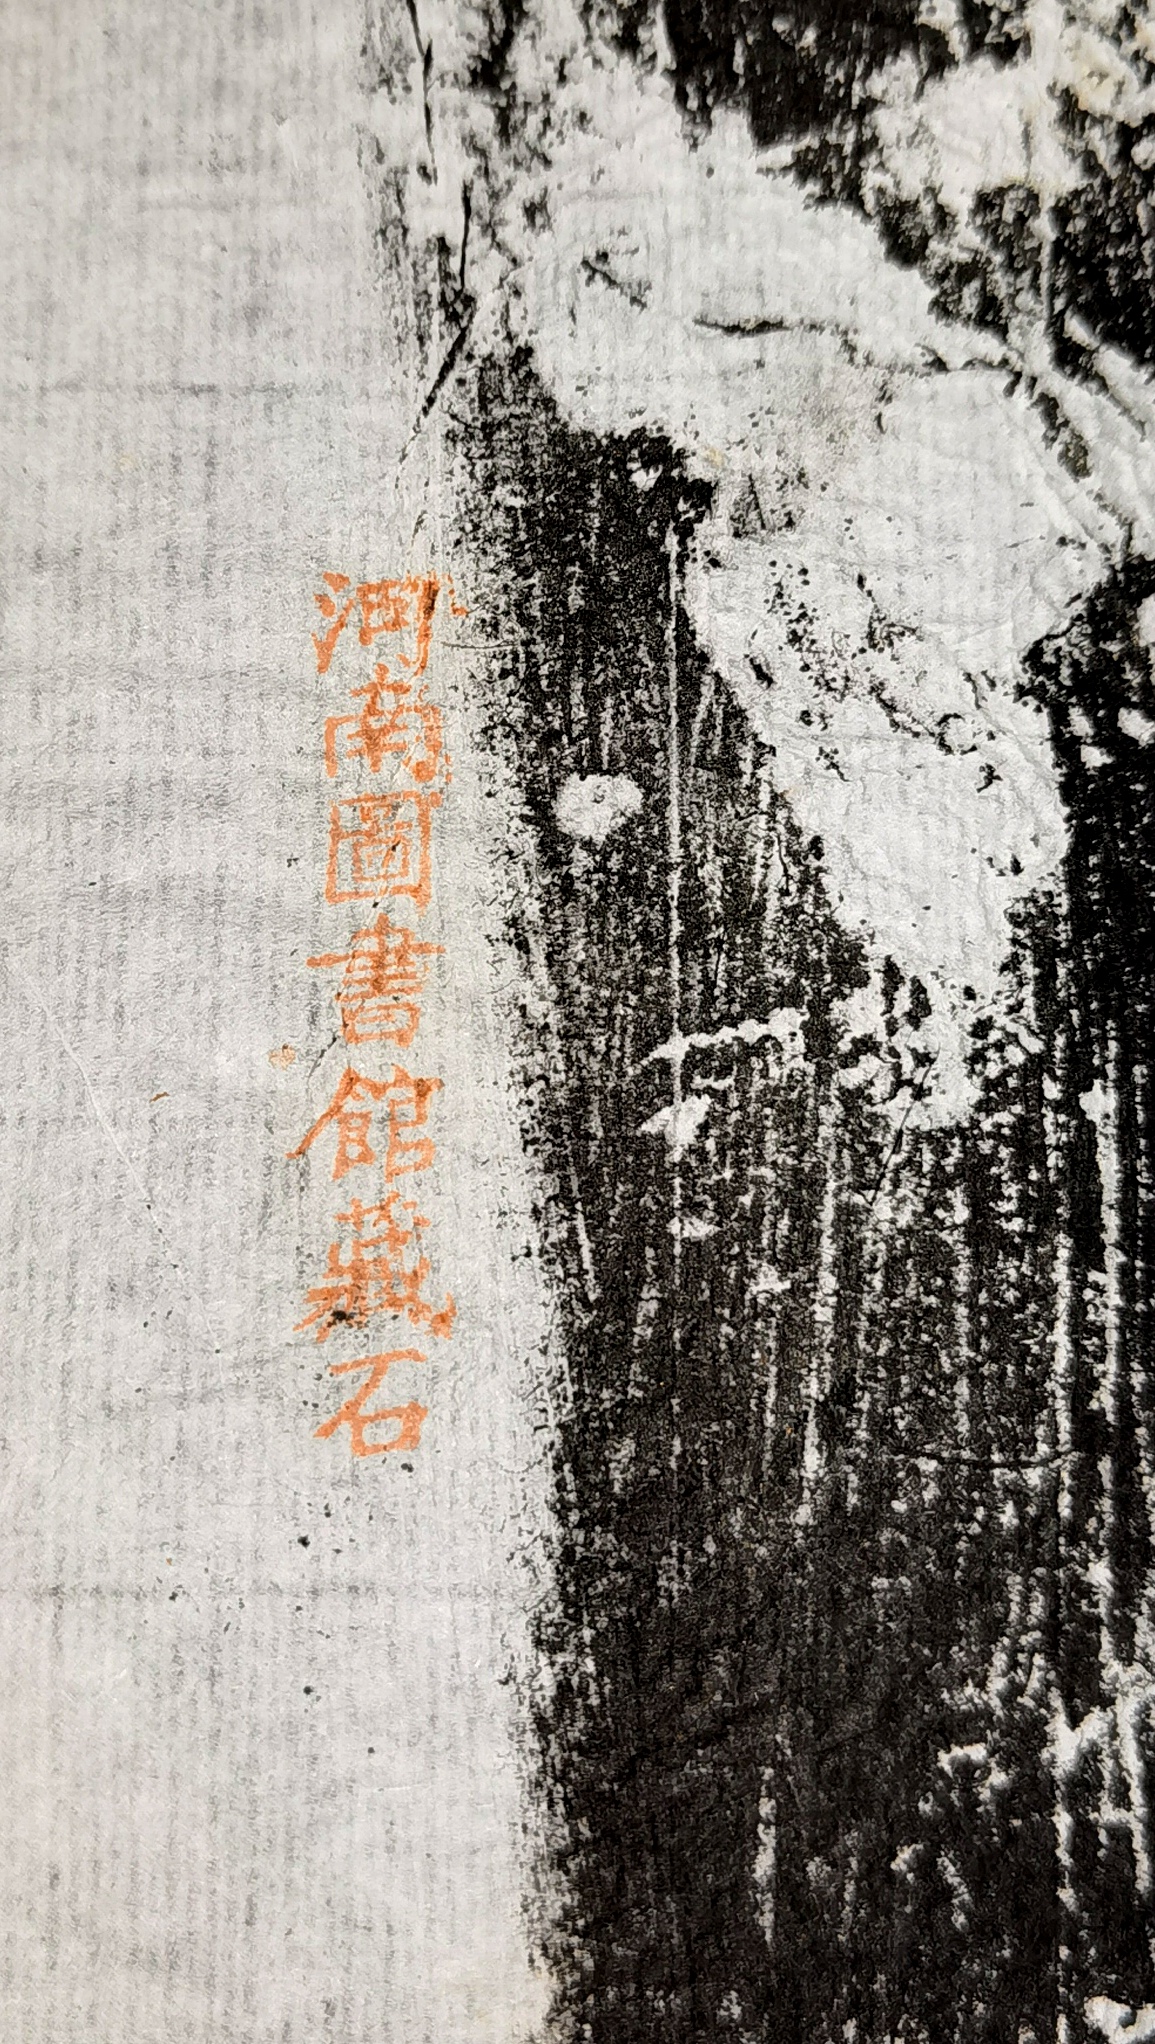 河南圖書館藏石